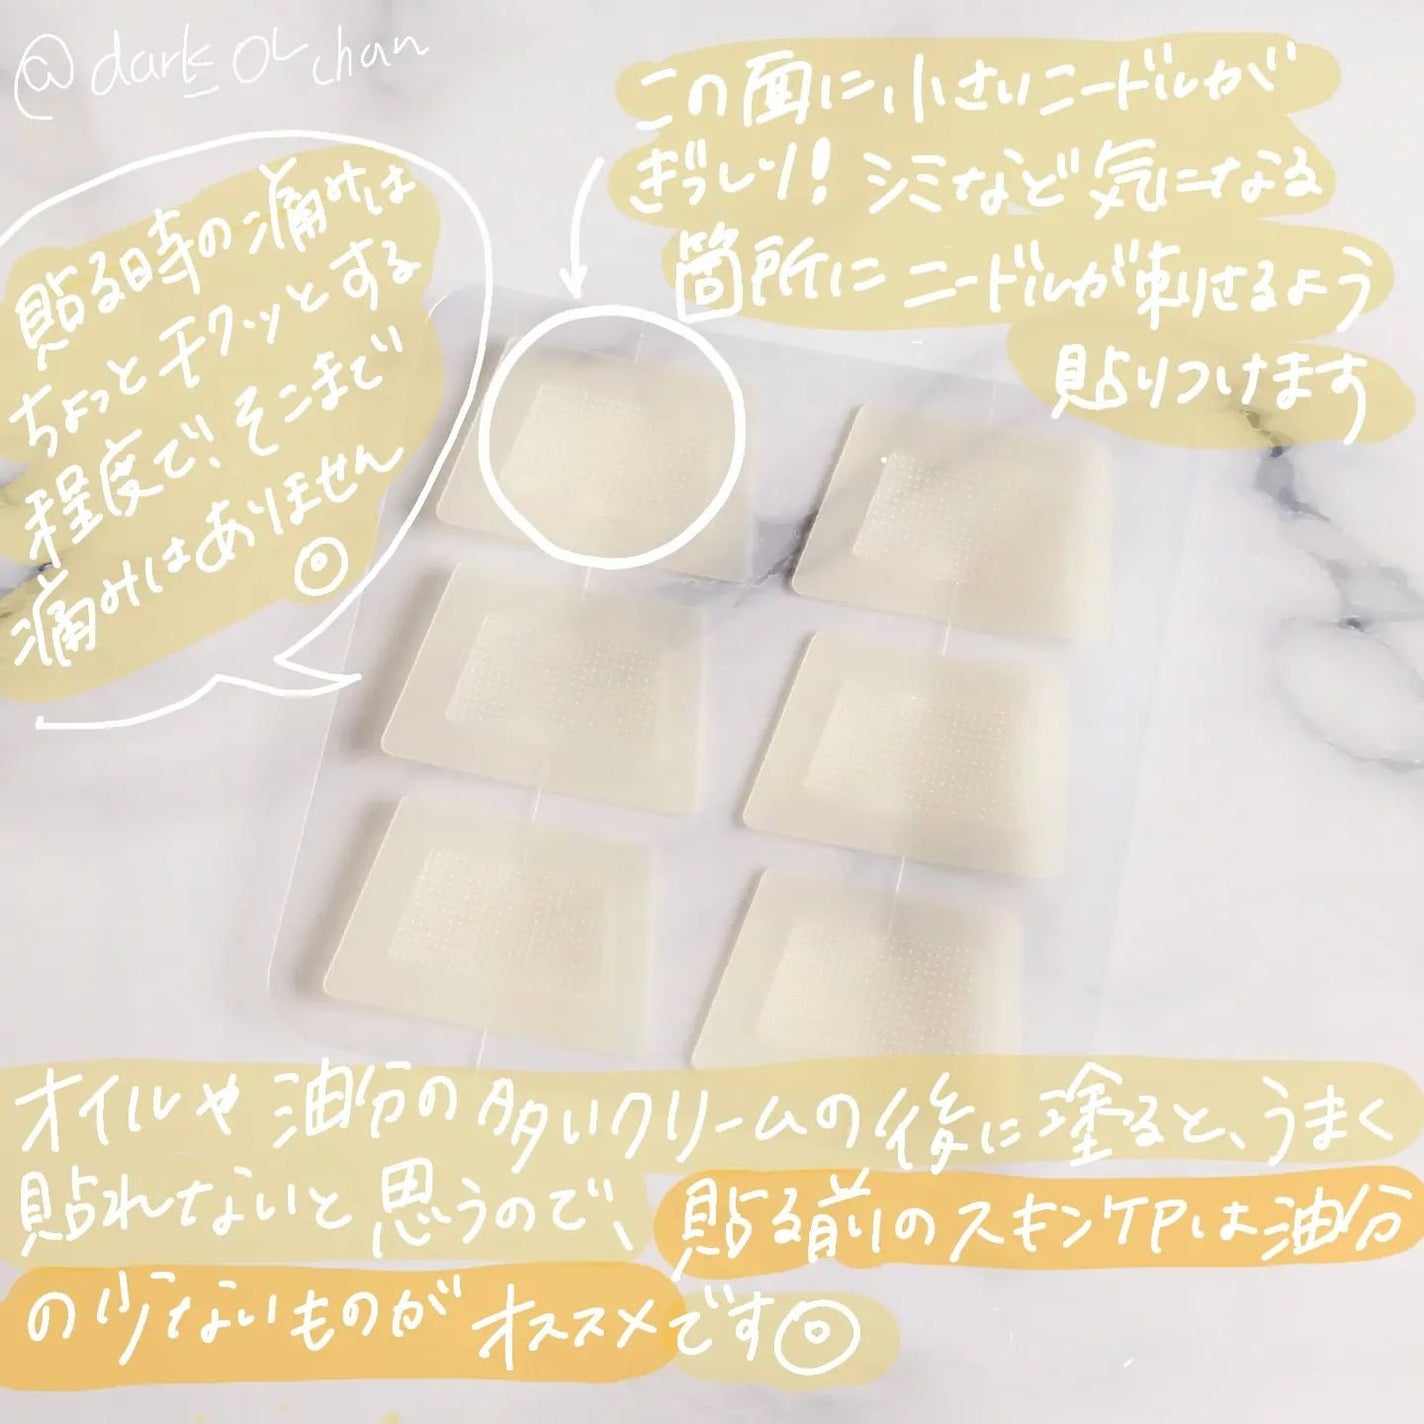 @dark_OL chan
この面に小さいニードルが
ぎっしり!シミなど気になる
箇所にニードルが刺せるよう
貼りつけます
貼る時の痛みは
ちょっとチクッとする
程度で、そこまで
痛みはありません
オイルや油分の多いクリームの後に塗ると、うまく
貼れないと思うので、貼る前のスキンケアは油分
の少ないものがオススメです◎